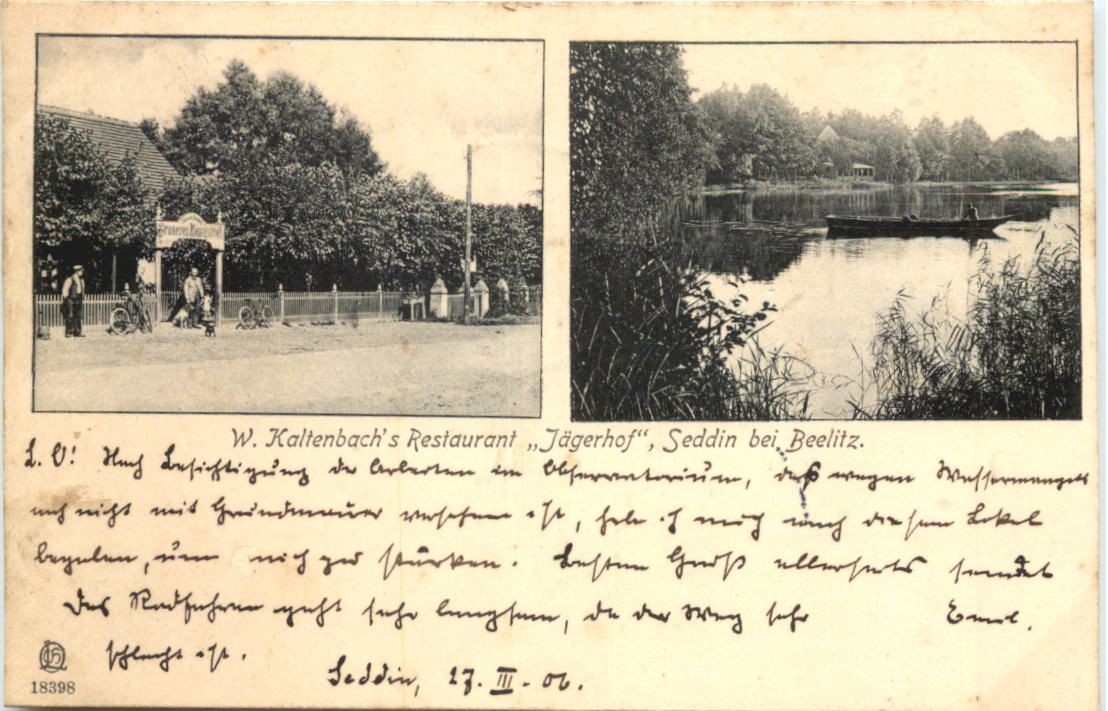 Brauerei
W. Kaltenbach's Restaurant „Jägerhof", Seddin bei Beelitz.
L. O! Nach Besichtigung der Arbeiten im Observatorium, das wegen Wassermangels
noch nicht mit Grundmauer versehen ist, habe ich mich nach diesem Lokal
begeben, um mich zu stärken. Besten Gruß allerseits sendet
Das Radfahren geht sehr langsam, da der Weg sehr Emil.
schlecht ist.
Seddin, 17. III. 06.
18398